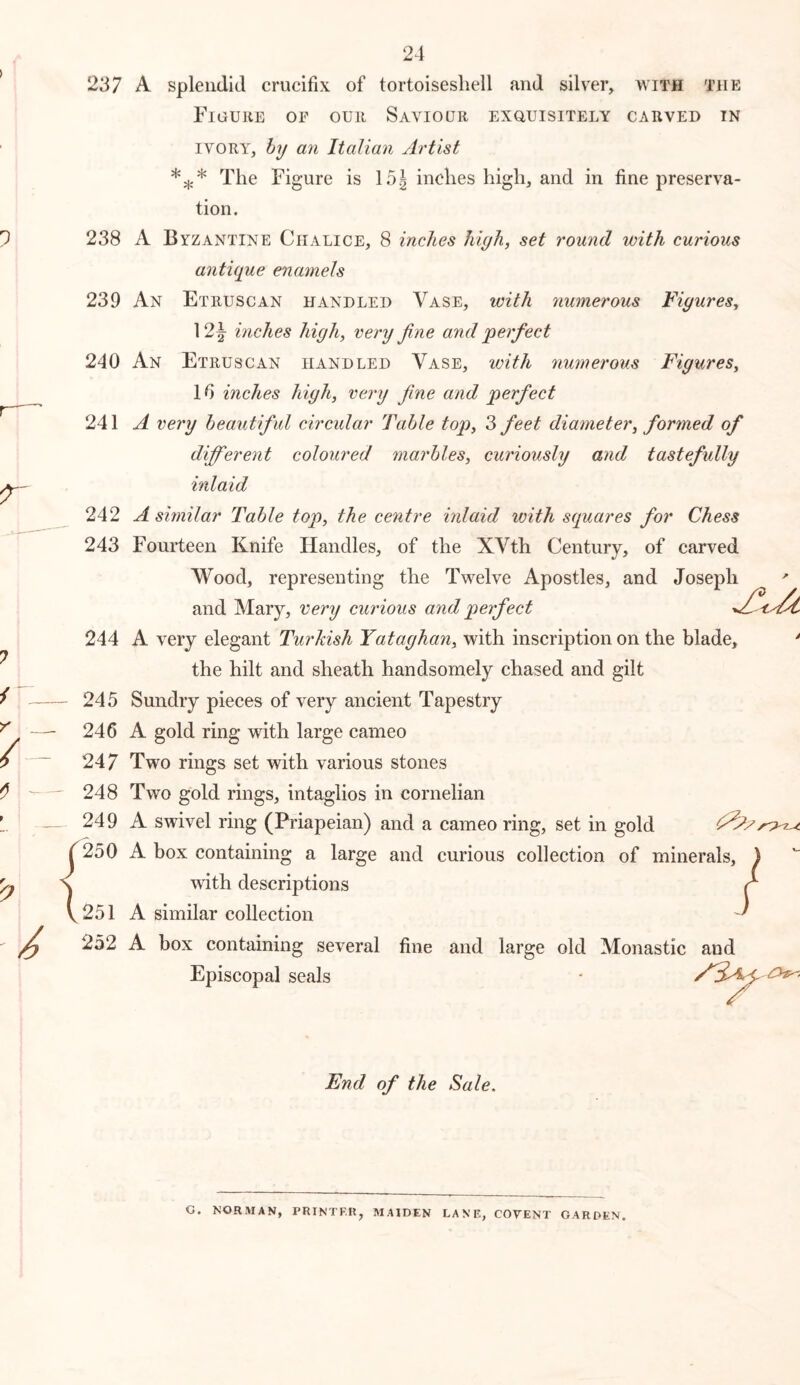 24
237 A splendid crucifix of tortoiseshell and silver, WITH THE
FIGURE OF OUR SAVIOUR EXQUISITELY CARVED IN
IVORY, by an Italian Artist
*** The Figure is 15½ inches high, and in fine preserva-
tion.
238 A BYZANTINE CHALICE, 8 inches high, set round with curious
antique enamels
239 AN ETRUSCAN HANDLED VASE, with numerous Figures,
12½ inches high, very fine and perfect
240 AN ETRUSCAN HANDLED VASE, with numerous Figures,
16 inches high, very fine and perfect
241 A very beautiful circular Table top, 3 feet diameter, formed of
different coloured marbles, curiously and tastefully
inlaid
242 A similar Table top, the centre inlaid with squares for Chess
243 Fourteen Knife Handles, of the XVth Century, of carved
Wood, representing the Twelve Apostles, and Joseph
and Mary, very curious and perfect
244 A very elegant Turkish Yataghan, with inscription on the blade,
the hilt and sheath handsomely chased and gilt
245 Sundry pieces of very ancient Tapestry
246 A gold ring with large cameo
247 Two rings set with various stones
248 Two gold rings, intaglios in cornelian
249 A swivel ring (Priapeian) and a cameo ring, set in gold
250 A box containing a large and curious collection of minerals,
with descriptions
251 A similar collection
252 A box containing several fine and large old Monastic and
Episcopal seals
End of the Sale.
G. NORMAN, PRINTER, MAIDEN LANE, COVENT GARDEN.